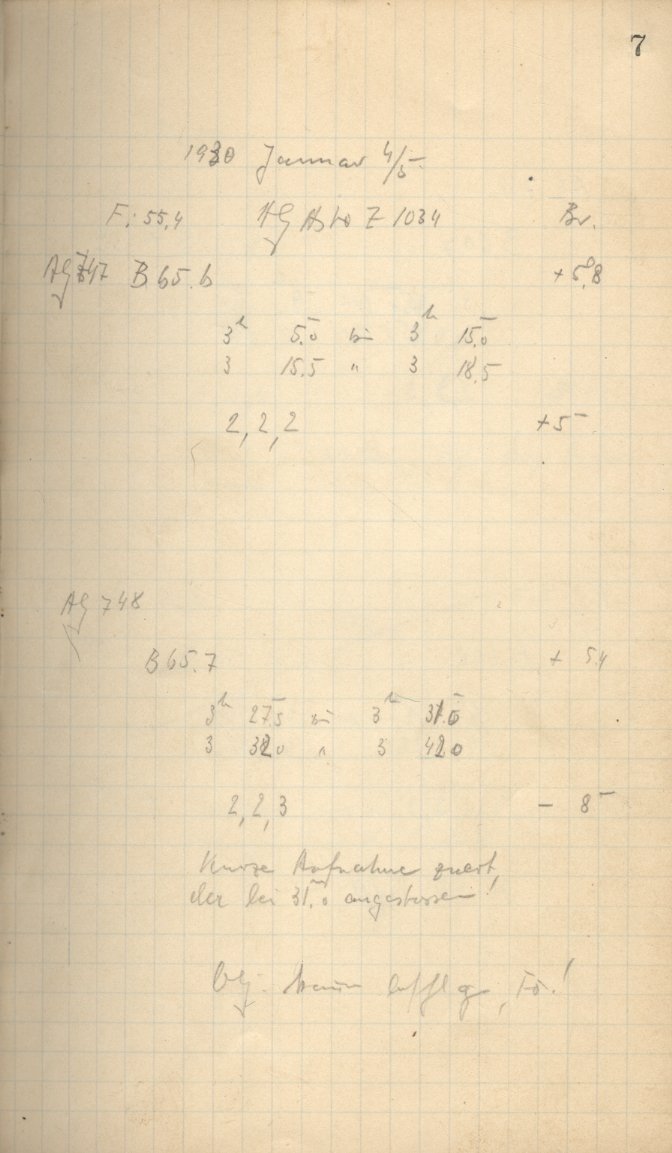 7
1930 Januar 4/5
F: 55,4 AG Astro Z 1034 Br.
AG 747 B 65.6 +5,8
3h 5,0 bis 3h 15,0
3 15,5 " 3 18,5
2, 2, 2 +5
AG 748
B 65.7 + 5,4
3h 27,5 bis 3h 31,0
3 32,0 " 3 42,0
2, 2, 3 - 8
Kurze Aufnahme zuerst,
da bei 31,0 angestossen!
Obj.